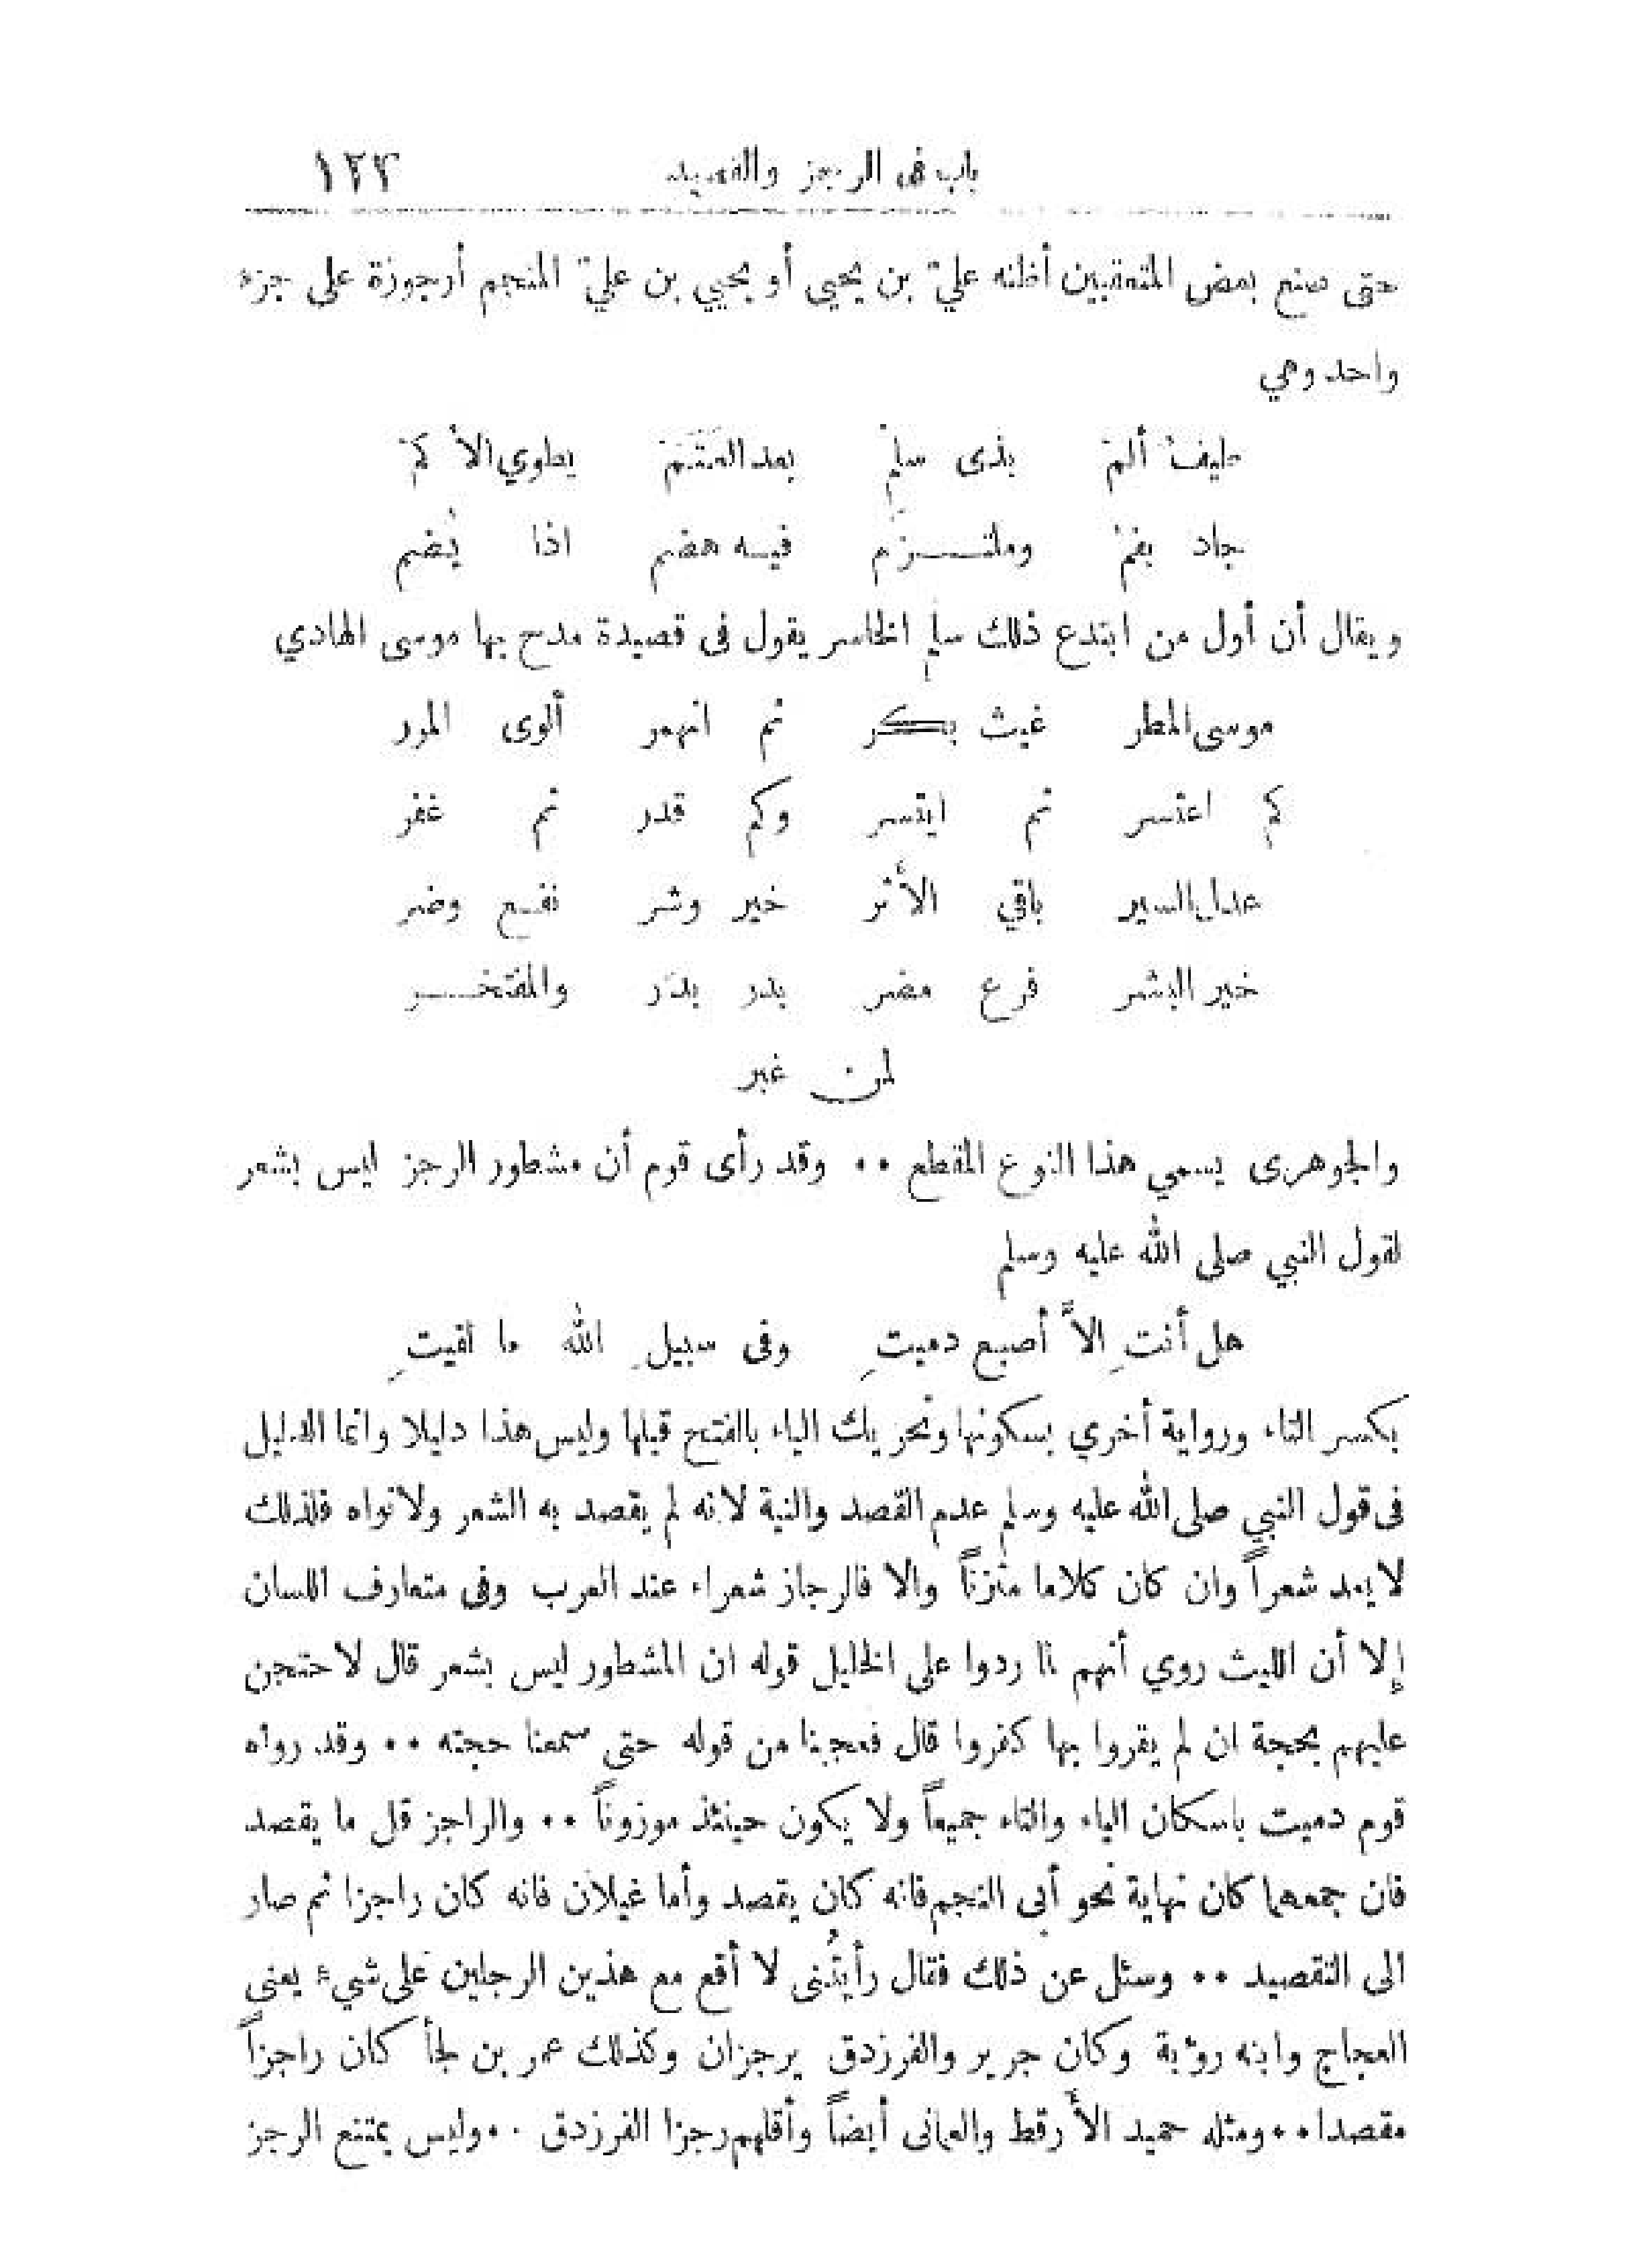 باب في الرجز والقصيد ١٢٣
حتى صنع بعض المتعقبين أظنه عليّ بن يحيى أو يحيي بن عليّ المنجم أرجوزة على جزء
واحد وهي
طيفٌ ألمّ بذى سلمْ بعد العَتَمْ يطوي الأكمْ
جاد بفمْ وملتـزَم فيه هضم اذا يُضم
ويقال أن أول من ابتدع ذلك سلم الخاسر يقول فى قصيدة مدح بها موسى الهادي
موسى المطر غيث بكر ثم انهمر ألوى المرر
كم اعتسر ثم ايتسر وكم قدر ثم غفر
عدل السير باقي الأثر خير وشر نفع وضر
خير البشر فرع مضر بدر بدر والمفتخر
لمن غبر
والجوهرى يسمي هذا النوع المقطع ٠٠ وقد رأى قوم أن مشطور الرجز ليس بشعر
لقول النبي صلى الله عليه وسلم
هل أنتِ الاَّ أصبع دميتِ وفى سبيلِ الله ما لقيتِ
بكسر التاء ورواية أخري بسكونها وتحريك الياء بالفتح قبلها وليس هذا دليلا وانما الدليل
فى قول النبي صلى الله عليه وسلم عدم القصد والنية لانه لم يقصد به الشعر ولا نواه فلذلك
لا يعد شعراً وان كان كلاما متزناً والا فالرجاز شعراء عند العرب وفى متعارف اللسان
إلا أن الليث روي أنهم لما ردوا على الخليل قوله ان المشطور ليس بشعر قال لاحتجن
عليهم بحجة ان لم يقروا بها كفروا قال فعجبنا من قوله حتى سمعنا حجته ٠٠ وقد رواه
قوم دميت باسكان الياء والتاء جميعاً ولا يكون حينئذ موزوناً ٠٠ والراجز قل ما يقصد
فان جمعهما كان نهاية نحو أبى النجم فانه كان يقصد وأما غيلان فانه كان راجزا ثم صار
الى التقصيد ٠٠ وسئل عن ذلك فقال رأيتُنى لا أقع مع هذين الرجلين على شيء يعنى
العجاج وابنه رؤبة وكان جرير والفرزدق يرجزان وكذلك عمر بن لجأ كان راجزاً
مقصدا ٠٠ ومثله حميد الأرقط والعمانى أيضاً وأقلهم رجزا الفرزدق ٠٠ وليس يمتنع الرجز